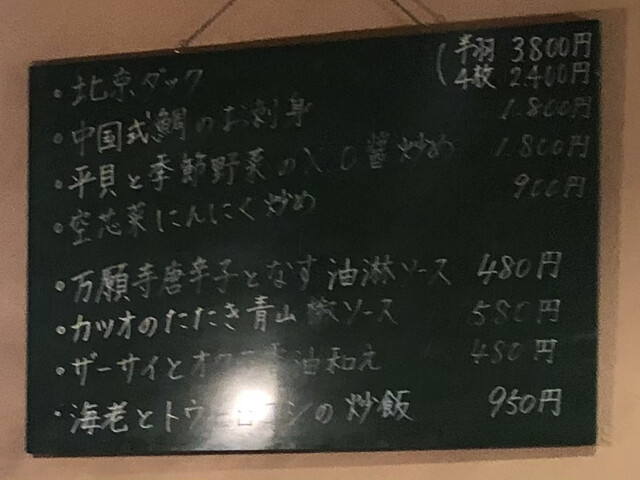 ・北京ダック (半羽 3800円
4枚 2.400円
・中国式鯛のお刺身 1.800円
・平貝と季節野菜のXO醤炒め 1.800円
・空芯菜にんにく炒め 900円
・万願寺唐辛子となす油淋ソース 480円
・カツオのたたき青山椒ソース 580円
・ザーサイとオクラ 油和え 480円
・海老とトウモロコシの炒飯 950円